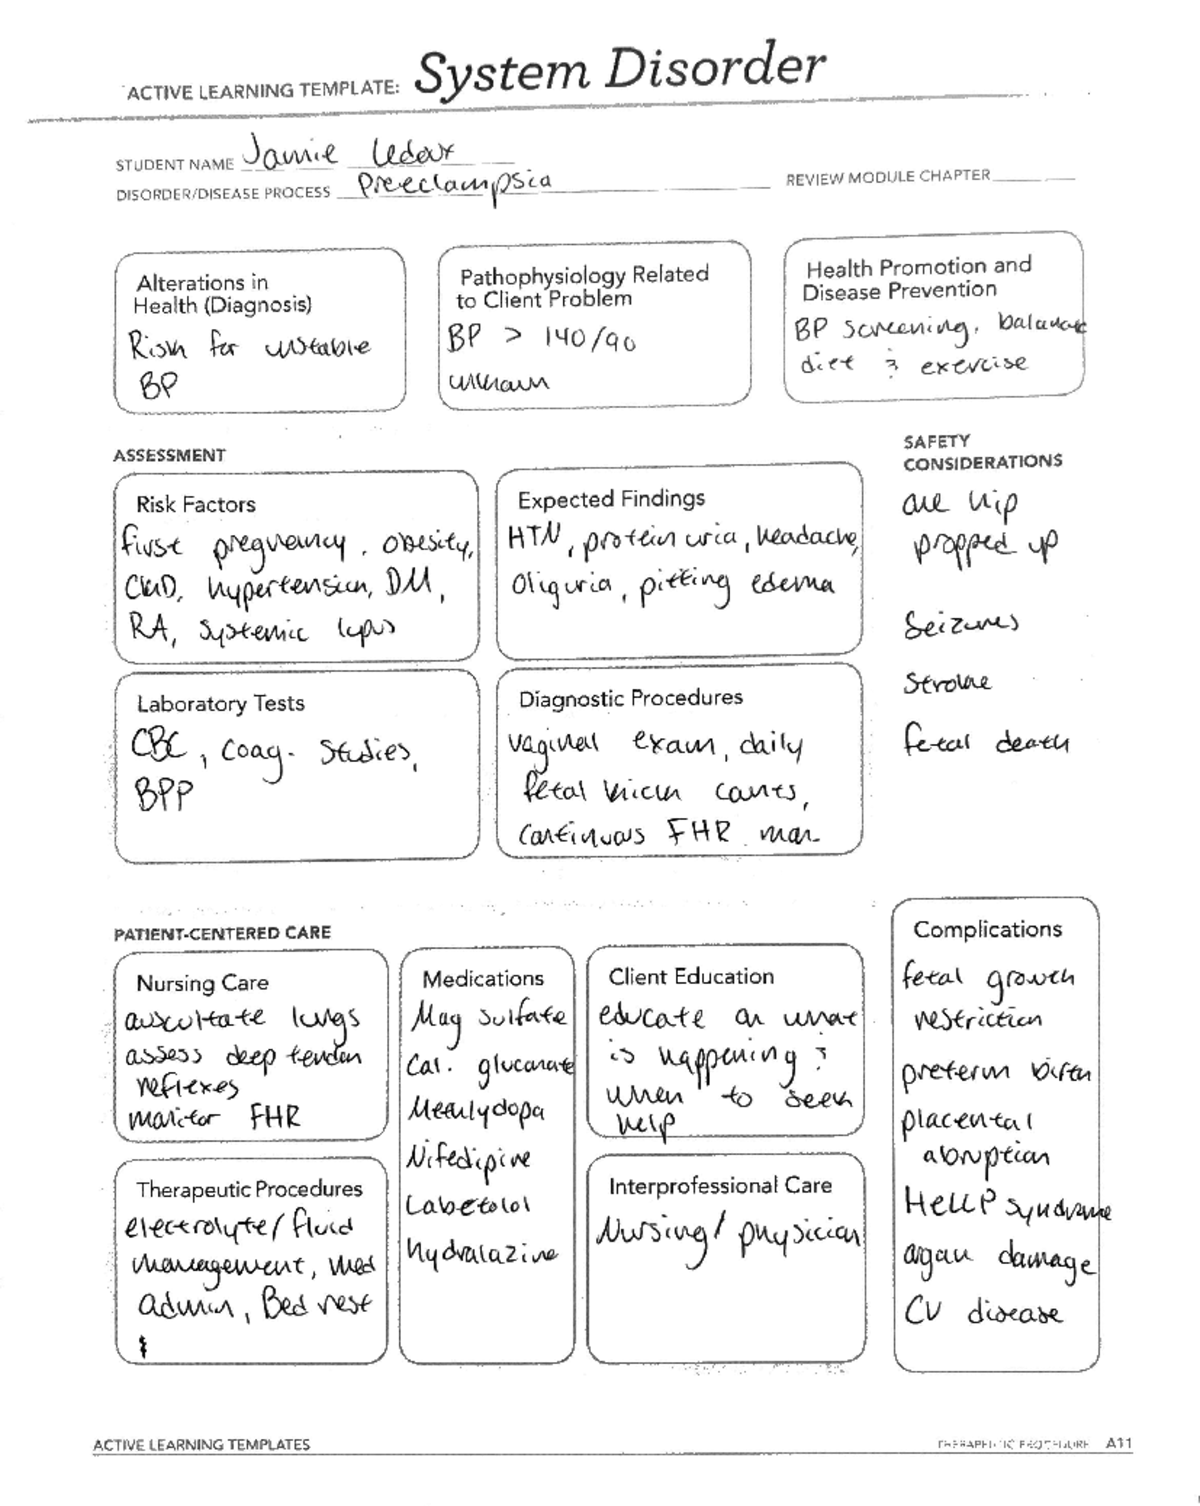 ACTIVE LEARNING TEMPLATE: System Disorder
STUDENT NAME Jamie Ledoux
DISORDER/DISEASE PROCESS Preeclampsia
REVIEW MODULE CHAPTER
Alterations in
Health (Diagnosis)
Risk for unstable
BP
Pathophysiology Related
to Client Problem
BP > 140/90
unknown
Health Promotion and
Disease Prevention
BP screening, balanced
diet & exercise
ASSESSMENT
SAFETY
CONSIDERATIONS
one hip
propped up
Seizures
Stroke
fetal death
Risk Factors
first pregnancy, obesity,
CKD, hypertension, DM,
RA, systemic lupus
Expected Findings
HTN, proteinuria, headache,
Oliguria, pitting edema
Laboratory Tests
CBC, coag. studies,
BPP
Diagnostic Procedures
vaginal exam, daily
fetal kick counts,
continuous FHR mon.
PATIENT-CENTERED CARE
Nursing Care
auscultate lungs
assess deep tendon
reflexes
monitor FHR
Medications
Mag sulfate
Cal. gluconate
Methlydopa
Nifedipine
Labetolol
hydralazine
Client Education
educate on what
is happening &
when to seek
help
Complications
fetal growth
restriction
preterm birth
placental
abruption
HELLP syndrome
organ damage
CV disease
Therapeutic Procedures
electrolyte/fluid
management, med
admin, Bed rest
Interprofessional Care
Nursing/physician
ACTIVE LEARNING TEMPLATES
THERAPEUTIC PROCEDURE A11